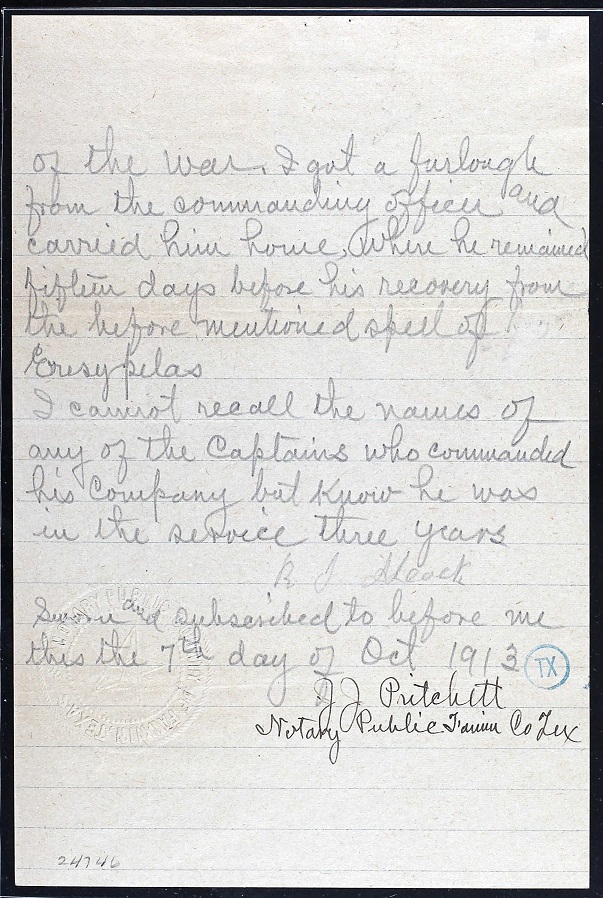 of the war. I got a furlough
from the commanding officer and
carried him home, where he remained
fifteen days before his recovery from
the before mentioned spell of
Eresypelas
I cannot recall the names of
any of the Captains who commanded
his Company but know he was
in the service three years
R J
Sworn and subscribed to before me
this the 7th day of Oct 1913
TX
J J Pritchett
Notary Public Fannin Co Tex
NOTARY PUBLIC
FANNIN TEXAS
24746